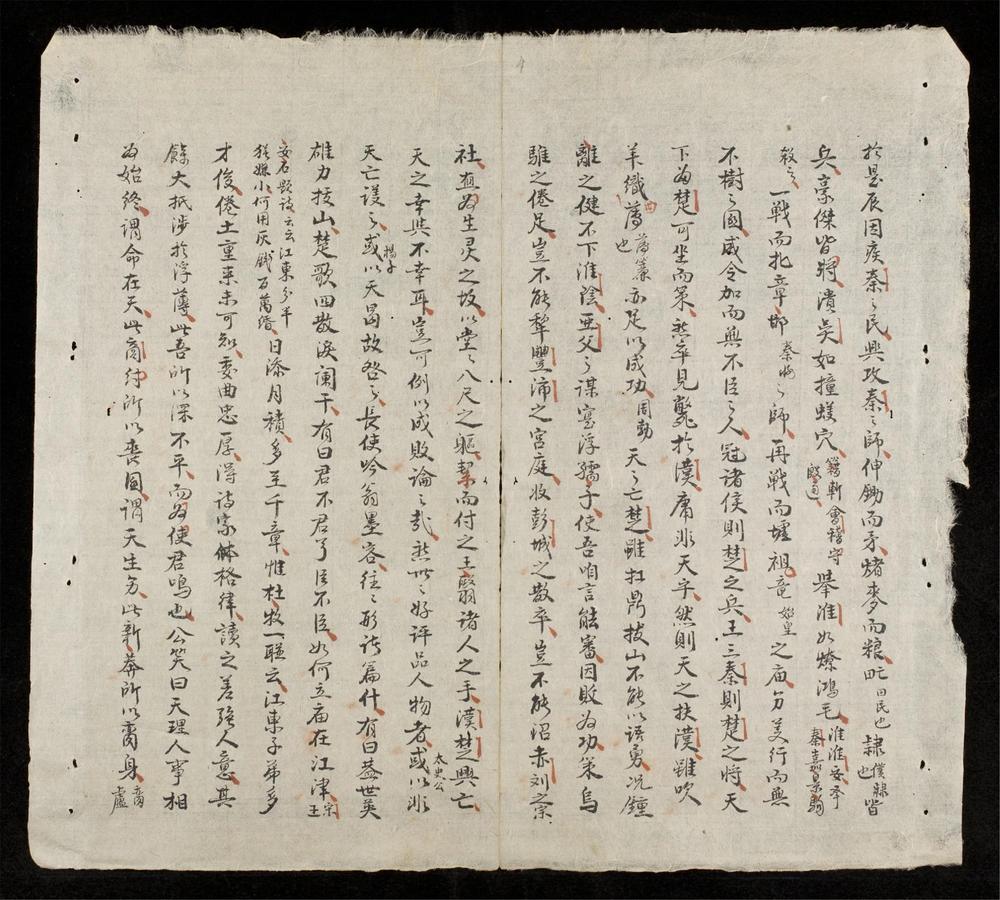 於是辰因疾秦〻民興攻秦〻師伸鋤而矛烤麥而粮甿曰民也隸僕隸也皆
兵豪傑皆將潰吳如撞蟻穴籍斬會稽守殷通舉淮如燎鴻毛淮淮安亭秦嘉景駒
殺之一戰而北章邯秦將〻師再戰而墟祖竜始皇之庙分美行而無
不樹〻國威令加而無不臣〻人冠諸侯則楚之兵王三秦則楚之將天
下为楚可坐而策然卒見斃於漢庸非天乎然則天之扶漢雖吹
羊織薄薄簑也亦足以成功周勃天〻亡楚雖扛鼎拔山不能以語勇况鍾
離之健不下淮陰亞父〻謀寔浮孺子使吾咱言能審因敗为功策烏
騅之倦足豈不能犂豐沛之宮庭收彭城之散卒豈不能俘赤刘之宗
社盍为生灵之故以堂〻八尺之軀挈而付之王翳諸人之手漢楚興亡
天之幸與不幸耳豈可例以成敗論〻哉然世〻好評品人物者或以非太史公
天亡謾〻或以天曷故咎〻揚子長使吟翁墨客往〻形諸篇什有曰盖世英
雄力拔山楚歌四散淚闌干有曰君不君兮臣不臣如何立庙在江津宋王
安石題詩云云江東多少千猶嫌小何用灰錢百萬緡日添月積多至千章惟杜牧一聯云江東子弟多
才俊倦土重来未可知委曲忠厚得詩家体格律讀之差強人意其
餘大抵涉於浮薄此吾所以深不平而为使君鳴也公笑曰天理人事相
为始終謂命在天此商紂所以喪國謂天生此新莽所以喪身